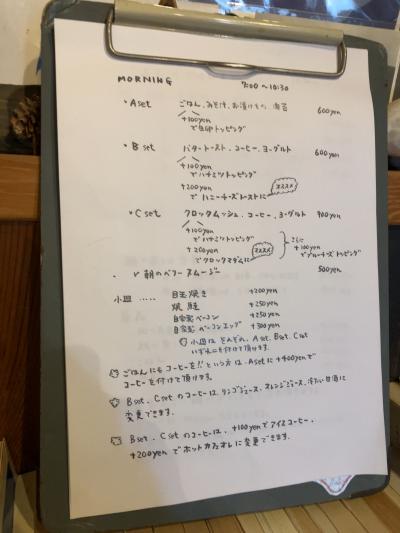 MORNING 7:00〜10:30
・A set ごはん、みそ汁、お漬けもの、海苔 600yen
+100yen
で生卵トッピング
・B set バタートースト、コーヒー、ヨーグルト 600yen
+100yen
でハチミツトッピング
+200yen オススメ
でハニーチーズトーストに
・C set クロックムッシュ、コーヒー、ヨーグルト 900yen
+100yen
でハチミツトッピング さらに
+200yen オススメ +100yen
でクロックマダムに でブルーチーズトッピング
朝のベリースムージー 500yen
小皿 ‥‥‥ 目玉焼き +200yen
焼鮭 +250yen
自家製ベーコン +250yen
自家製ベーコンエッグ +300yen
小皿はそれぞれ、A set、B set、C set
いずれにも付けて頂けます。
ごはんにもコーヒーを!! という方は、A setに+400yenで
コーヒーを付けて頂けます。
B set、C setのコーヒーは、リンゴジュース、オレンジジュース、冷たい甘酒に
変更できます。
B set、C setのコーヒーは、+100yenでアイスコーヒー、
+200yenでホットカフェオレに変更できます。